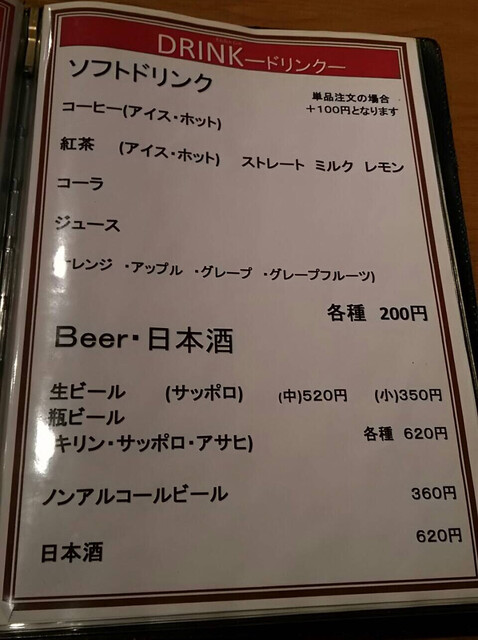 DRINK―ドリンク―
ソフトドリンク
単品注文の場合
+100円となります
コーヒー(アイス・ホット)
紅茶 (アイス・ホット) ストレート ミルク レモン
コーラ
ジュース
レンジ ・アップル ・グレープ ・グレープフルーツ)
各種 200円
Beer・日本酒
生ビール (サッポロ) (中)520円 (小)350円
瓶ビール
キリン・サッポロ・アサヒ) 各種 620円
ノンアルコールビール 360円
日本酒 620円